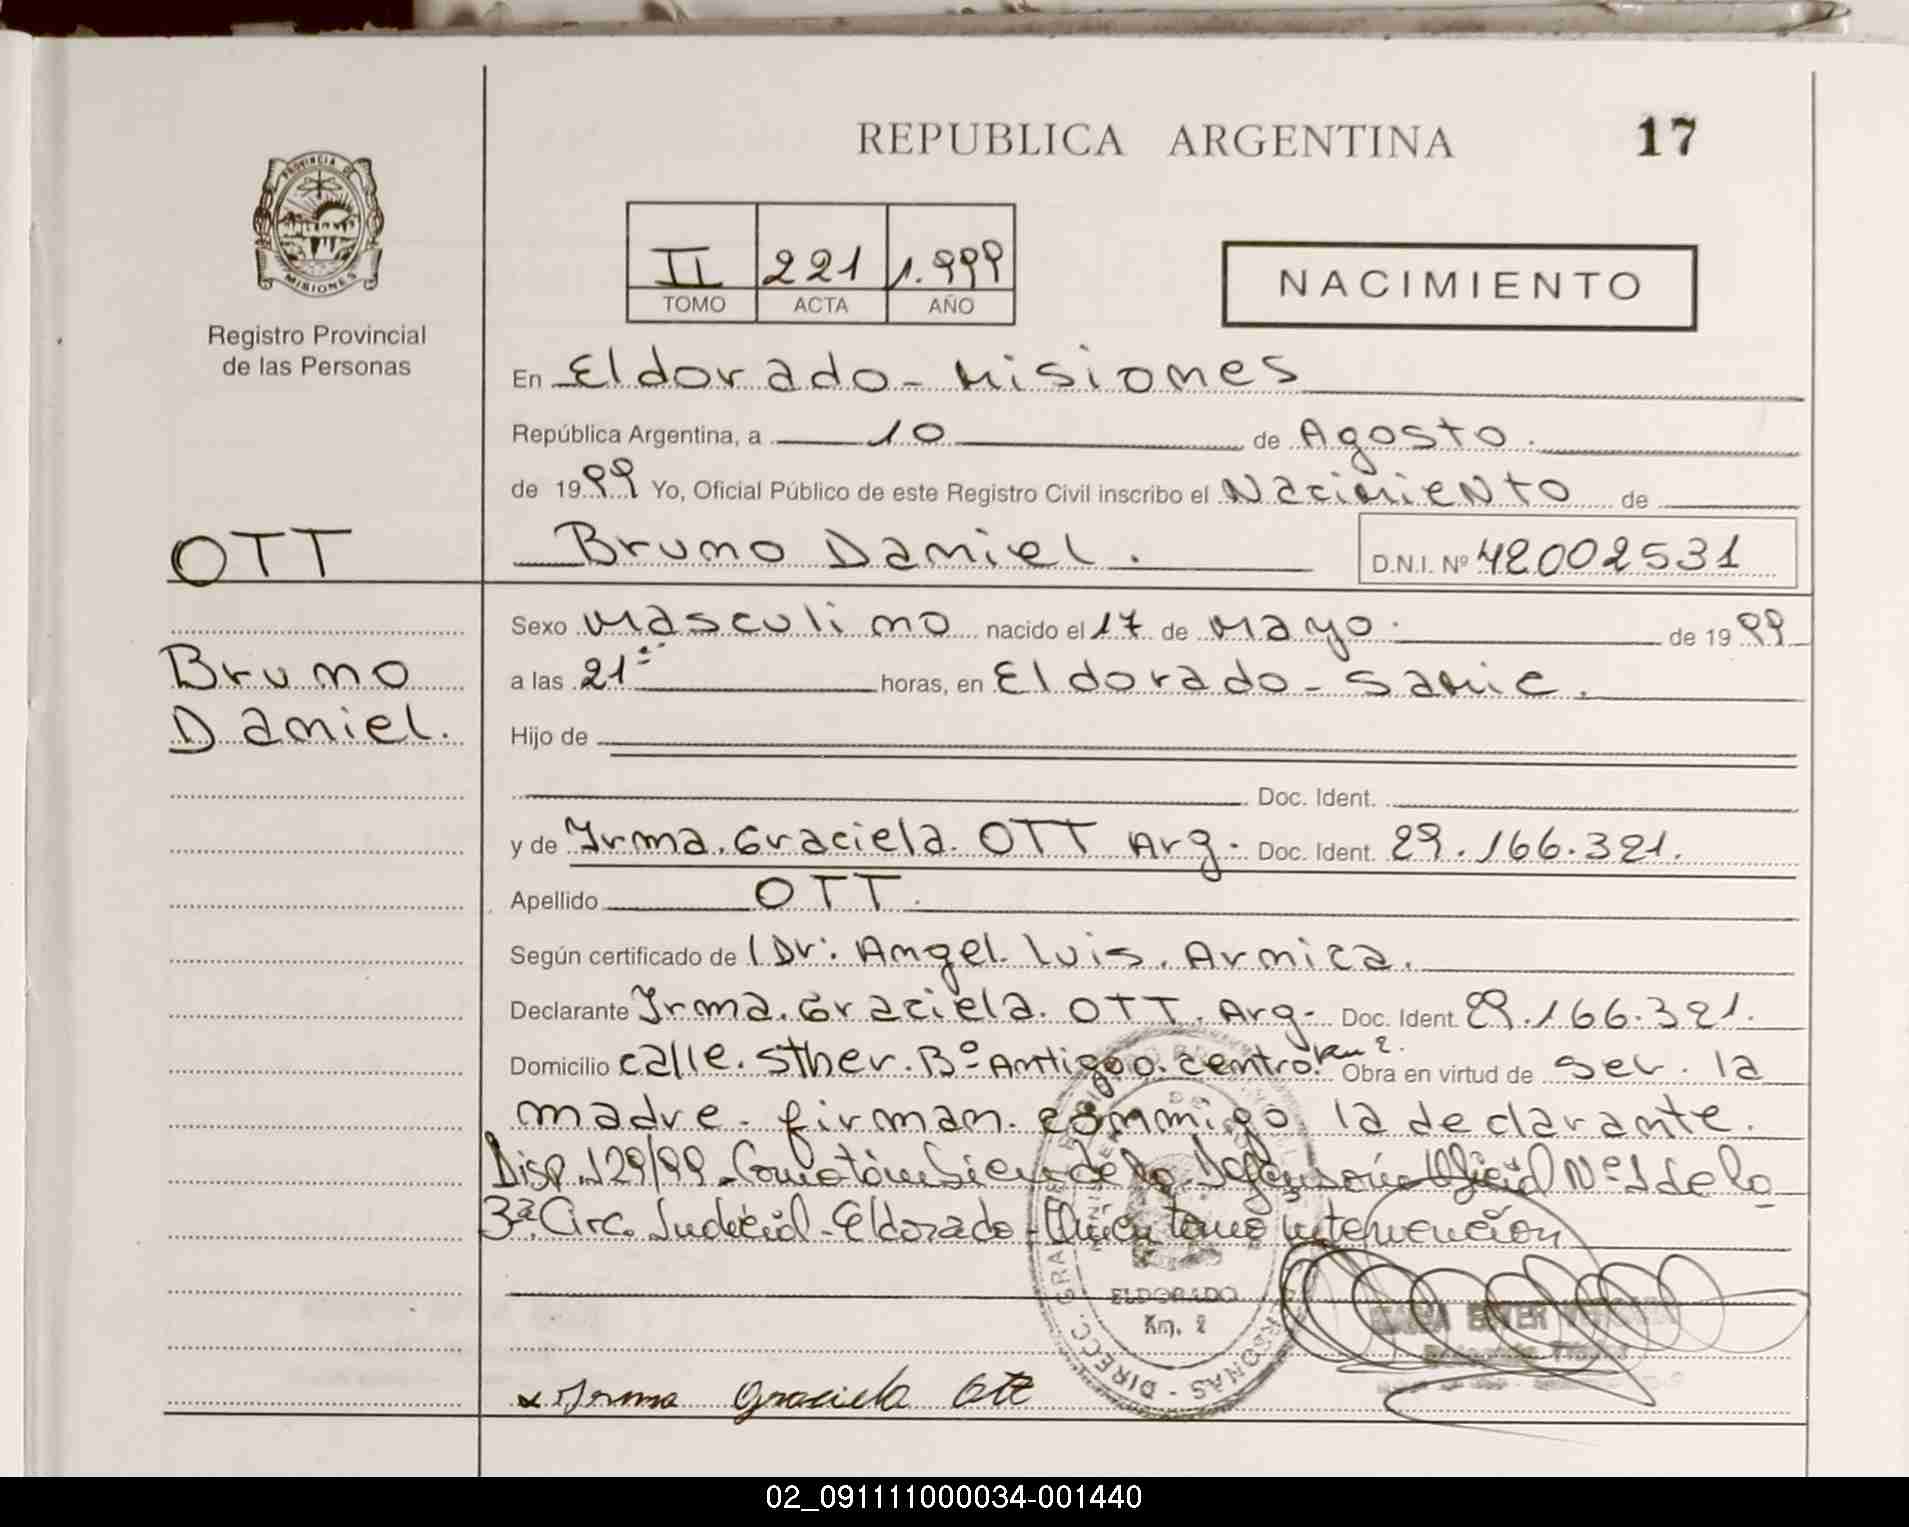 REPUBLICA ARGENTINA
17
PROVINCIA DE MISIONES
Registro Provincial
de las Personas
II 221 1.999
TOMO ACTA AÑO
NACIMIENTO
En Eldorado - Misiones
República Argentina, a 10 de Agosto.
de 1999 Yo, Oficial Público de este Registro Civil inscribo el Nacimiento de
OTT
Bruno Daniel. D.N.I. Nº 42002531
Sexo Masculino nacido el 17 de Mayo. de 1999
Bruno
Daniel.
a las 21 horas, en Eldorado - Samic.
Hijo de
Doc. Ident.
y de Irma. Graciela. OTT Arg. Doc. Ident. 29.166.321.
Apellido OTT.
Según certificado de Dr: Angel. Luis. Arnica.
Declarante Irma. Graciela. OTT. Arg. Doc. Ident. 29.166.321.
Domicilio calle. Sther. Bº Antiguo. centro. Km 2. Obra en virtud de ser. la
madre. firman. conmigo la declarante.
Disp. 129/99 - Como también de la Defensoría Oficial Nº 1 de la
3ª Circ. Judicial - Eldorado - Quien tomo intervención
ELDORADO
Km. 2
DIREC. GRAL.
x Irma Graciela Ott
02_091111000034-001440